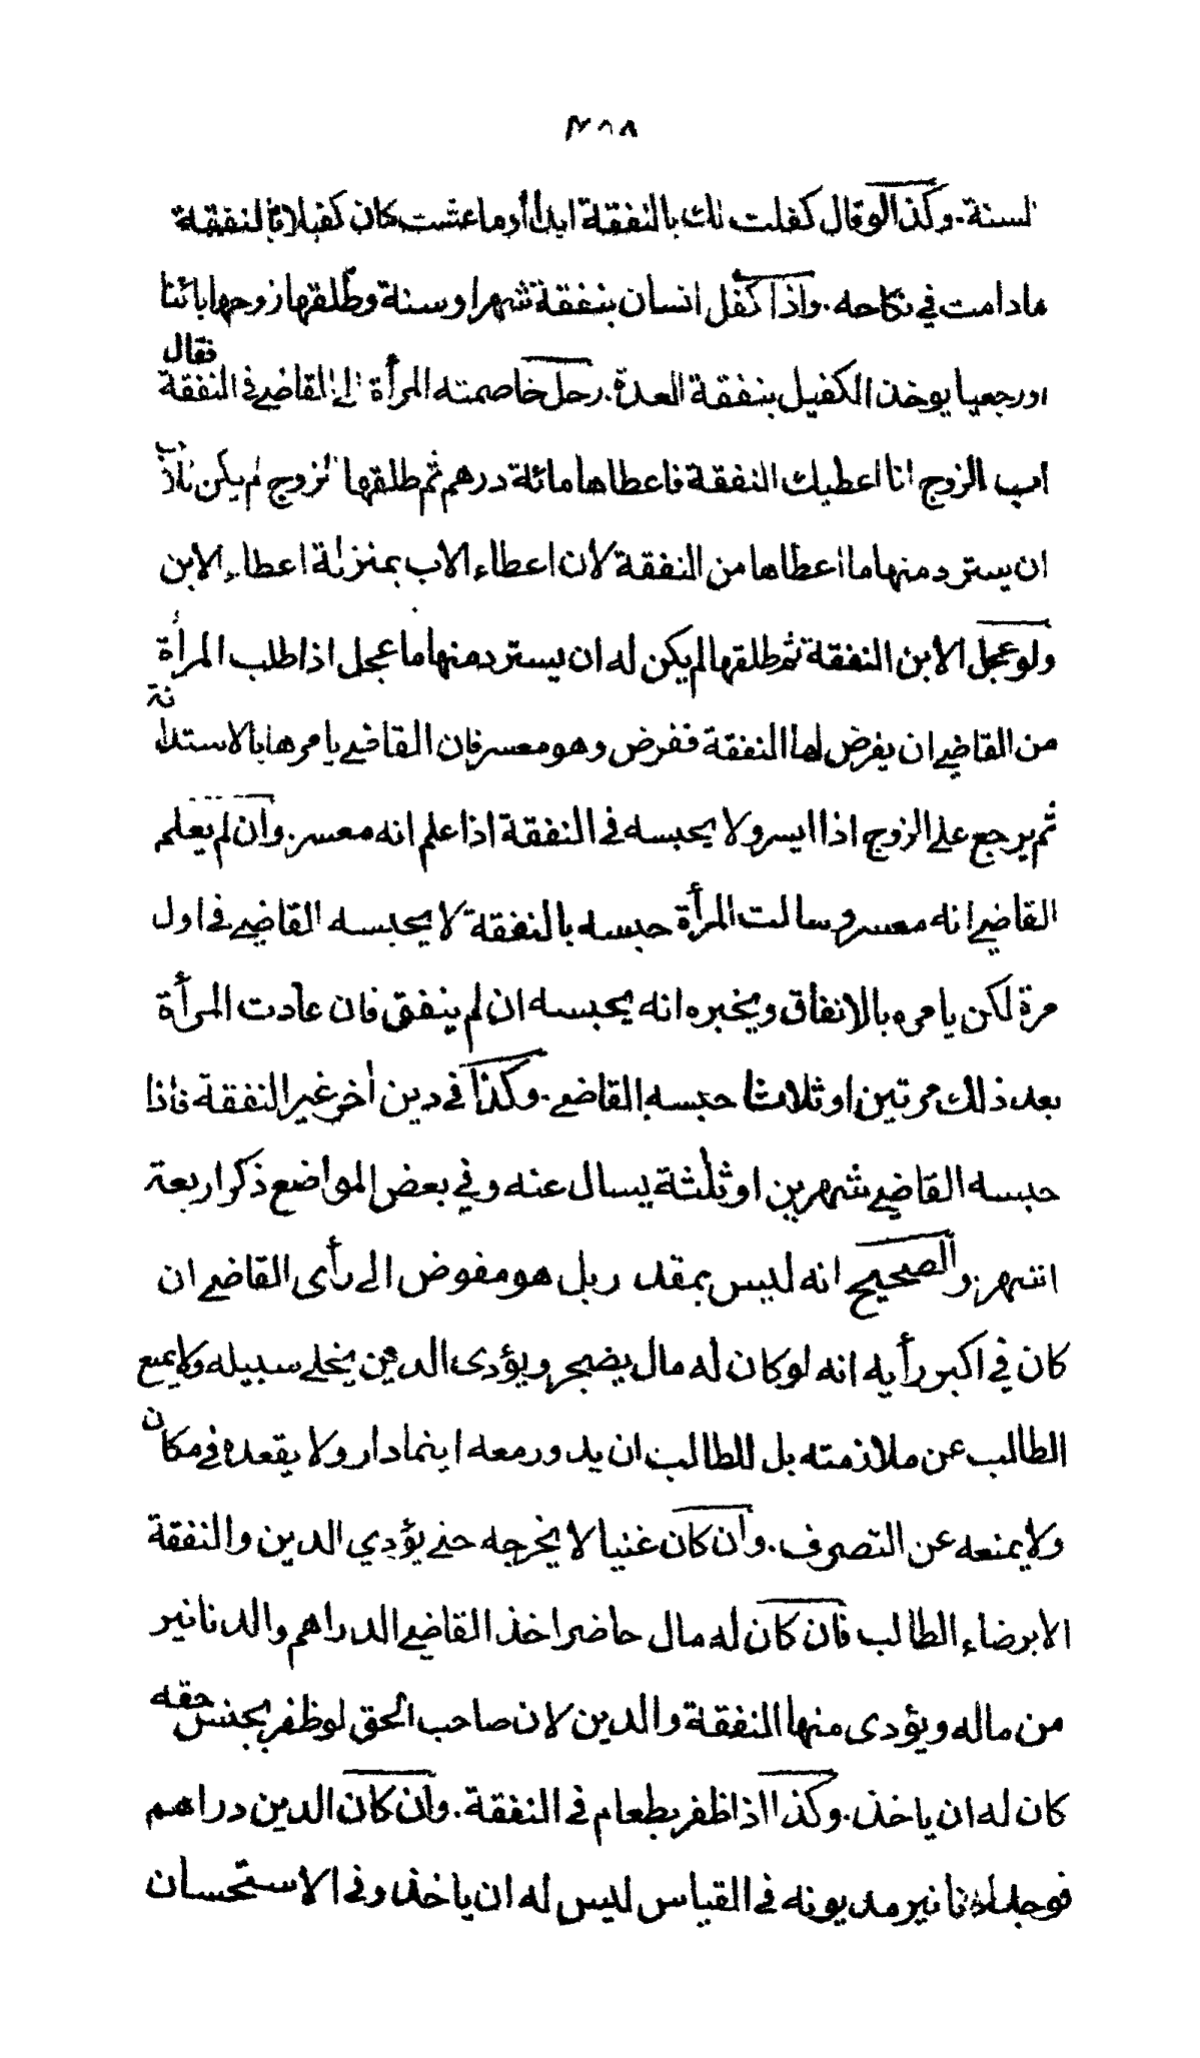 ٣٨٨
لسنة. وكذا لو قال كفلت لك بالنفقة ابدا أو ما عشت كان كفيلا بالنفقة
ما دامت في نكاحه. واذا كفل انسان بنفقة شهر او سنة وطلقها زوجها بائنا
او رجعيا يوخذ الكفيل بنفقة العدة. رجل خاصمته المرأة الى القاضي في النفقة فقال
اب الزوج انا اعطيك النفقة فاعطاها مائة درهم ثم طلقها الزوج لم يكن للاب
ان يسترد منها ما اعطاها من النفقة لان اعطاء الاب بمنزلة اعطاء الابن
ولو عجل الابن النفقة ثم طلقها لم يكن له ان يسترد منها ما عجل اذا طلب المرأة
من القاضي ان يفرض لها النفقة ففرض وهو معسر فان القاضي يامرها بالاستدانة
ثم يرجع على الزوج اذا ايسر ولا يحبسه في النفقة اذا علم انه معسر. وان لم يعلم
القاضي انه معسر وسالت المرأة حبسه بالنفقة لا يحبسه القاضي في اول
مرة لكن يامره بالانفاق ويخبره انه يحبسه ان لم ينفق فان عادت المرأة
بعد ذلك مرتين او ثلاثا حبسه القاضي. وكذا في دين أخر غير النفقة فاذا
حبسه القاضي شهرين او ثلثة يسال عنه وفي بعض المواضع ذكر اربعة
اشهر. والصحيح انه ليس بمقدر بل هو مفوض الى رأى القاضي ان
كان في اكبر رأيه انه لو كان له مال يضجر ويؤدى الدين يخلى سبيله ولا يمنع
الطالب عن ملازمته بل للطالب ان يدور معه اينما دار ولا يقعده في مكان
ولا يمنعه عن التصرف. وان كان غنيا لا يخرجه حتى يؤدي الدين والنفقة
الا برضاء الطالب فان كان له مال حاضر اخذ القاضي الدراهم والدنانير
من ماله ويؤدى منها النفقة والدين لان صاحب الحق لو ظفر بجنس حقه
كان له ان ياخذ. وكذا اذا ظفر بطعام في النفقة. وان كان الدين دراهم
فوجد دنانير مديونه في القياس ليس له ان ياخذ وفي الاستحسان